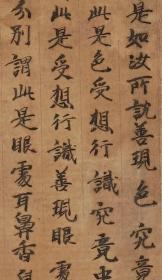 是如汝所說善現色究竟
此是色受想行識究竟中
此是受想行識善現眼處
分別謂此是眼處耳鼻